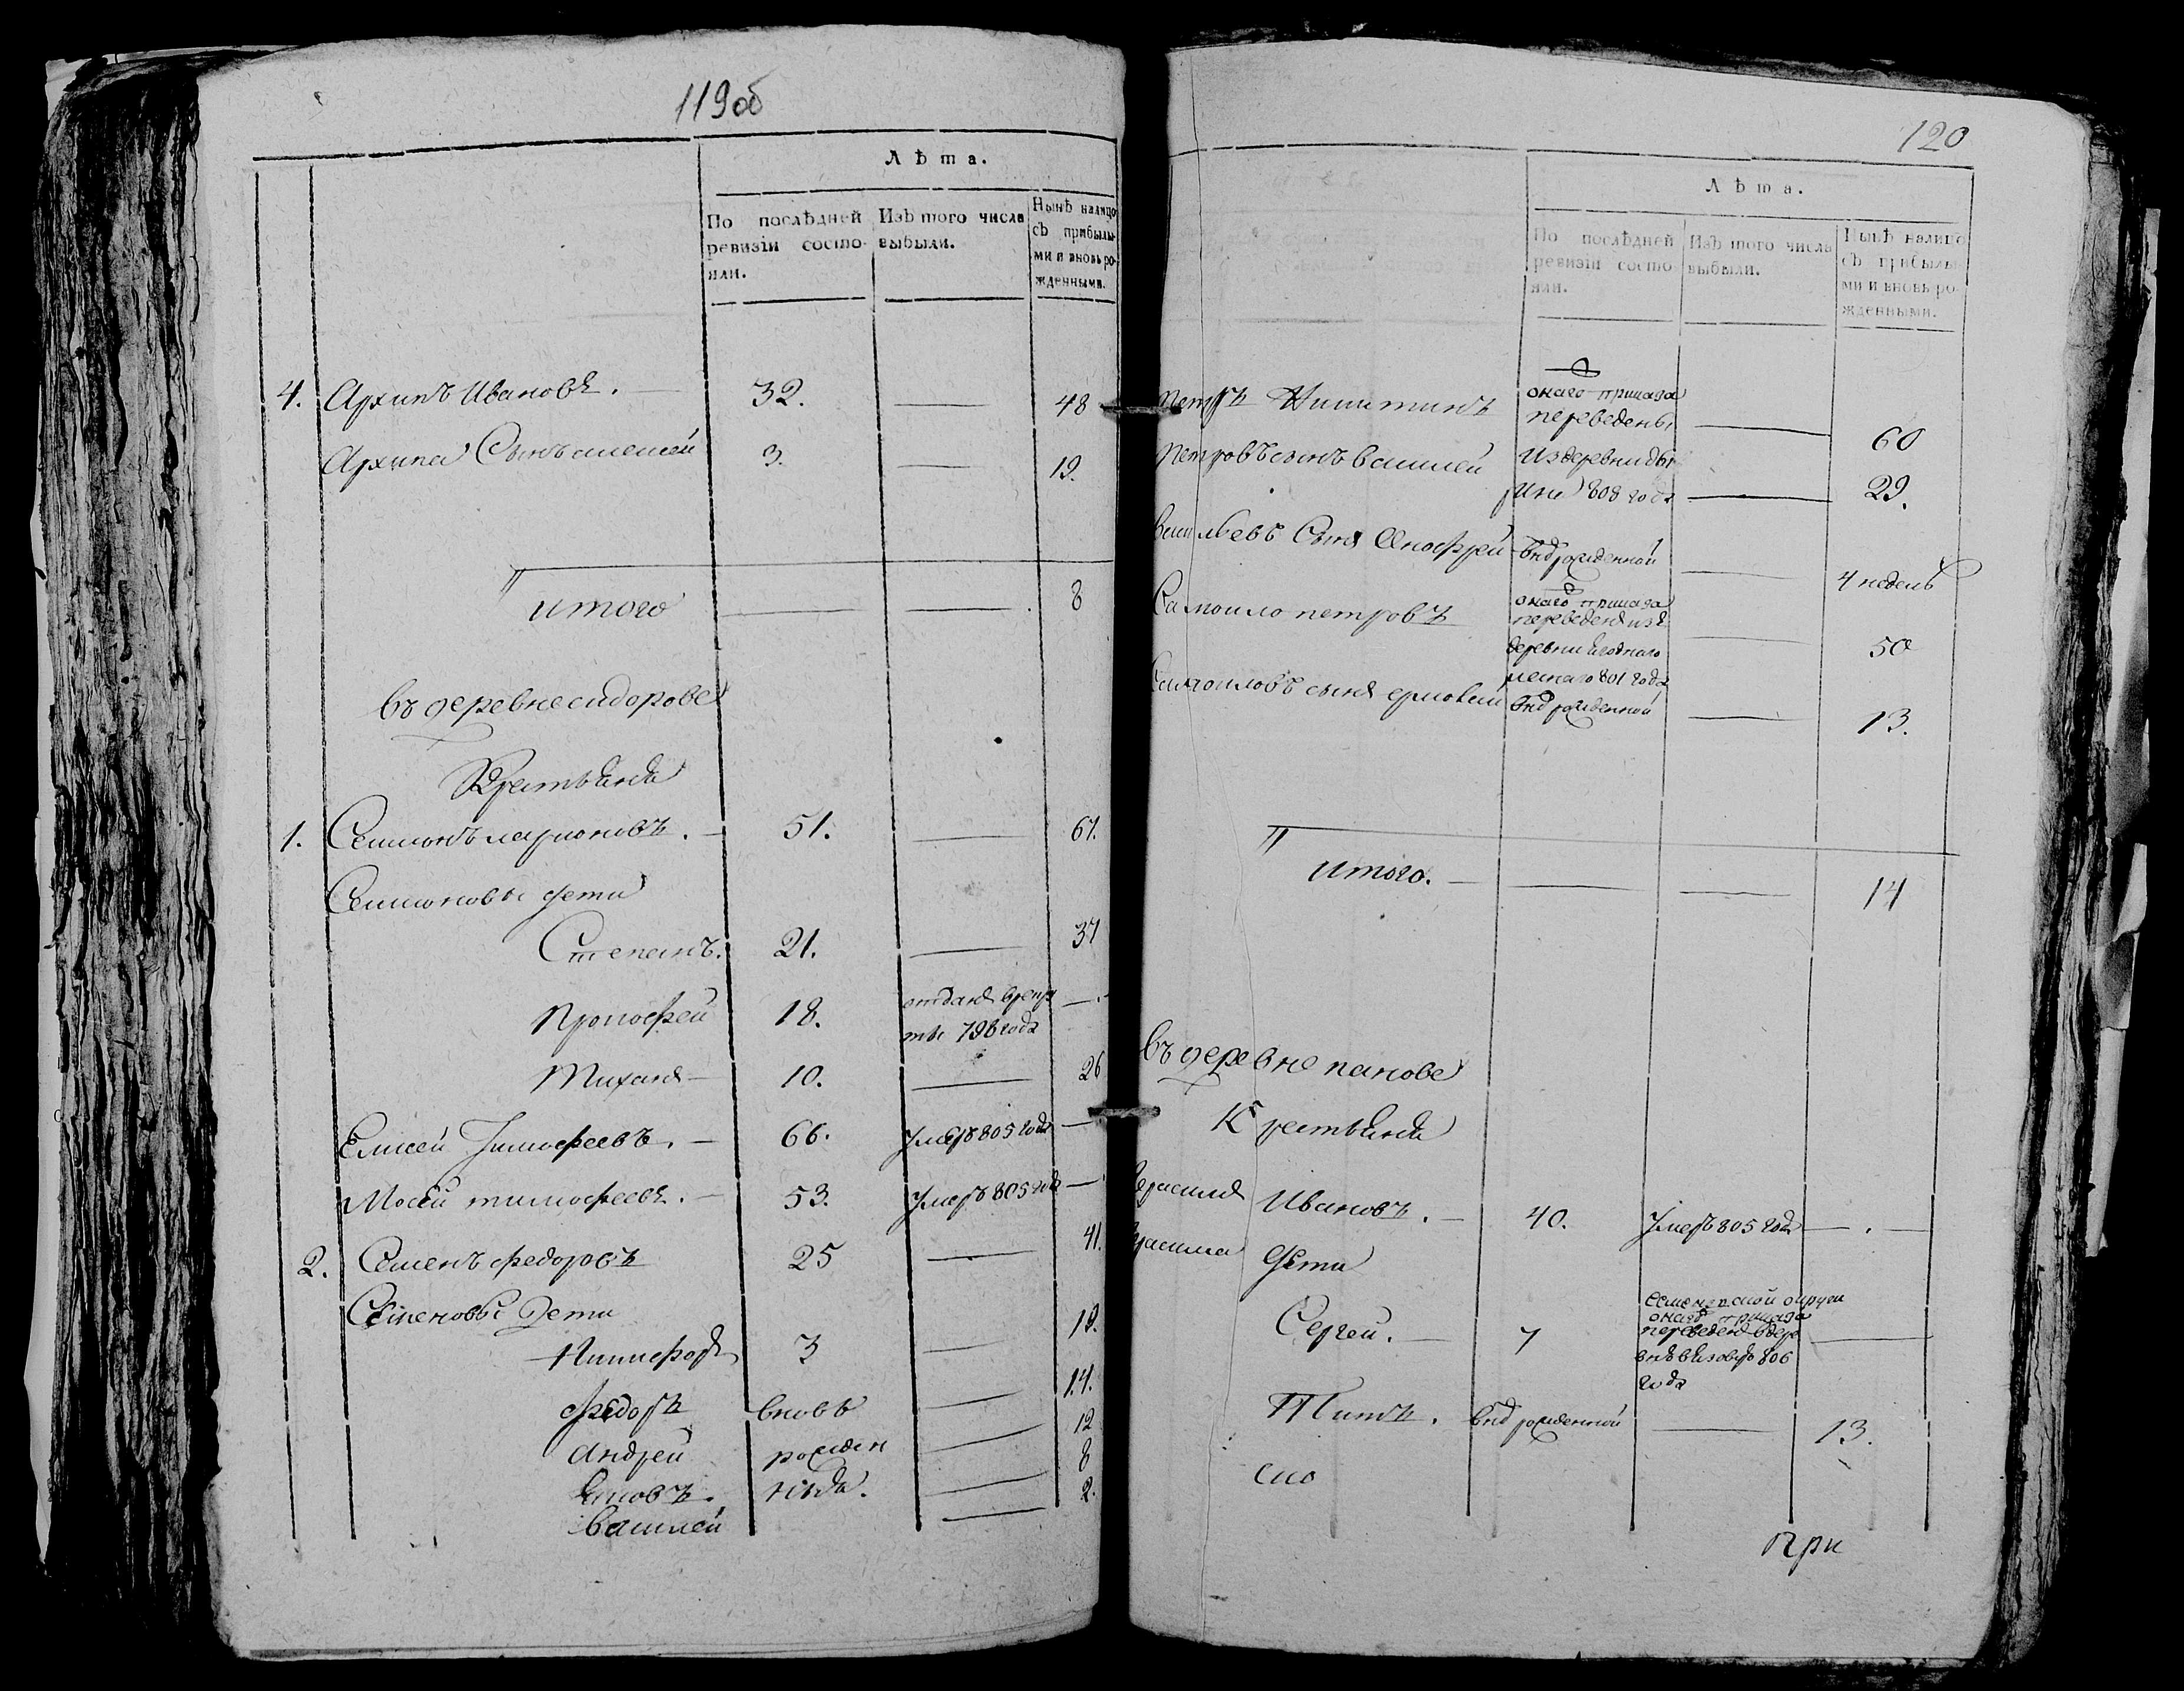 119об
Лѣта.
По послѣдней ревизіи состояли.
Изъ того числа выбыли.
Нынѣ налицо съ прибылыми и вновь рожденными.
4. Архипъ Ивановъ. 32. — 48
Архипа Сынъ алексей 3. — 19.
итого — — 8
въ деревне сидорове
Крестьяня
1. Семионъ ларионовъ. — 51. — 67.
Семионовы дети
Степанъ. 21. — 37
Прокофей 18. отданъ врекру —
ты 798 года
Михаил — 10. — 26
Елисей Тимофеевъ. — 66. Умеръ 805 года —
Мосей тимофеевъ. — 53. Умеръ 805 года —
2. Семенъ федоровъ 25 — 41.
Семеновы Дети
Никифоръ 3 — 19.
федоръ вновь — 14.
андрей рожден — 12
Яковъ. — 8
василей — 2.
120
Лѣта.
По послѣдней ревизіи состояли.
Изъ того числа выбыли.
Нынѣ налицо съ прибылыми и вновь рожденными.
Петръ Никитинъ онаго приказа
переведены — 60
Петровъ сынъ василей из деревни
808 года — 29.
васильевъ Сынъ Анофрей внов рожденной — 4 недель
Самоило петровъ онаго приказа
переведенъ изъ
деревни — 50
801 года
Самоиловъ сынъ ермолай внов рожденной — 13.
итого. — — — 14
въ деревне панове
Крестьяня
Ивановъ. — 40. Умеръ 805 года — . —
дети
Сергей. — 7 Семеновской округи
онаго приказа
переведенъ вдере
806 —
года
Титъ. внов рожденной — 13.
сио
При